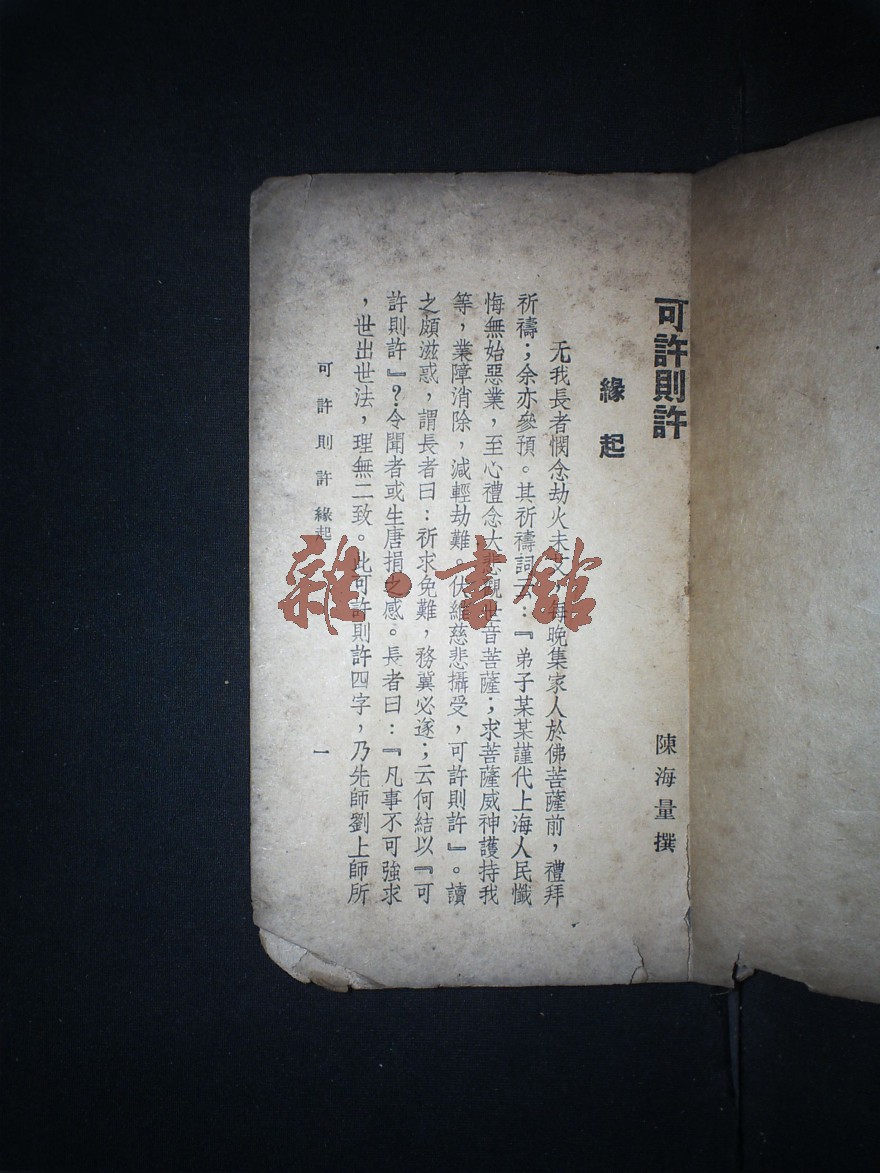 可許則許
陳海量撰
緣起
无我長者憫念劫火未 每晚集家人於佛菩薩前，禮拜
祈禱；余亦參預。其祈禱詞云：『弟子某某謹代上海人民懺
悔無始惡業，至心禮念大悲觀世音菩薩；求菩薩威神護持我
等，業障消除，減輕劫難。伏維慈悲攝受，可許則許』。讀
之頗滋惑，謂長者曰：祈求免難，務冀必遂；云何結以『可
許則許』？令聞者或生唐捐之感。長者曰：『凡事不可強求
，世出世法，理無二致。此可許則許四字，乃先師劉上師所
可許則許 緣起
一
雜·書館